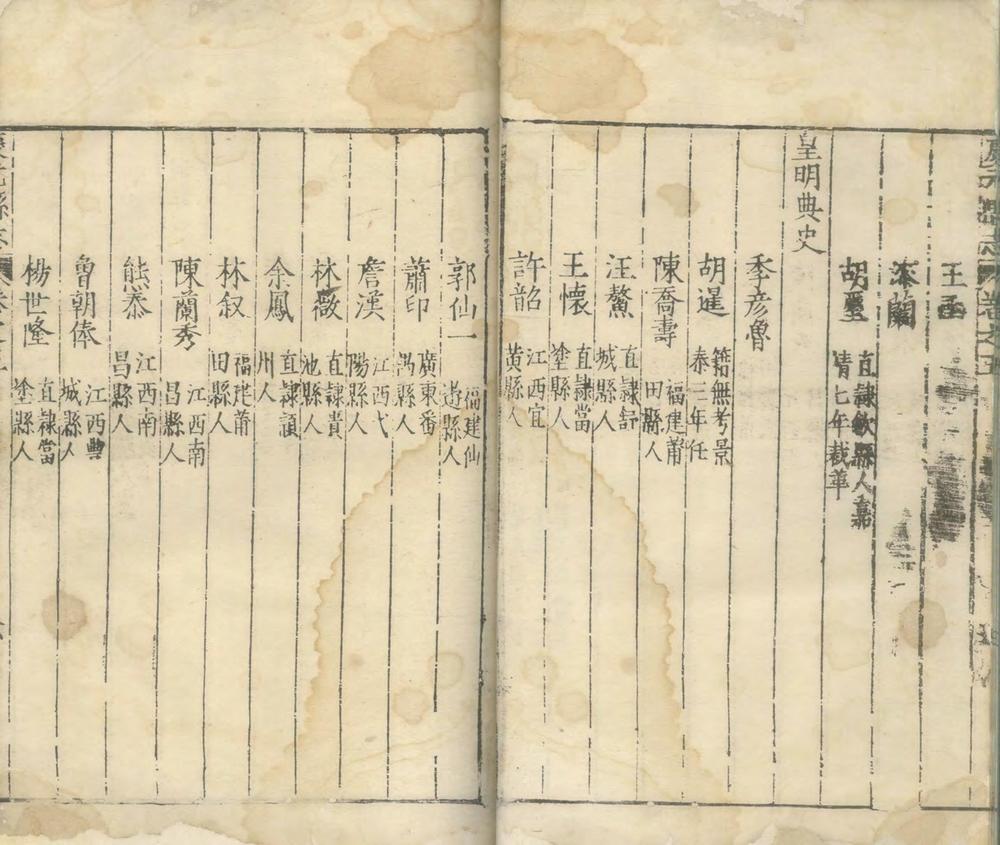 慶元縣志 卷之五
王函
蘭
胡璽 直隷歙縣人嘉
靖七年裁革
皇明典史
季彦魯
胡暹 籍無考景
泰三年任
陳喬壽 福建莆
田縣人
汪鰲 直隷舒
城縣人
王懷 直隷當
塗縣人
許韶 江西宜
黃縣人
郭仙一 福建仙
遊縣人
蕭印 廣東番
禺縣人
詹漢 江西弋
陽縣人
林敬 直隷貴
池縣人
余鳳 直隷頴
州人
林叙 福建莆
田縣人
陳蘭秀 江西南
昌縣人
熊㤗 江西南
昌縣人
魯朝俸 江西豐
城縣人
楊世隆 直隷當
塗縣人